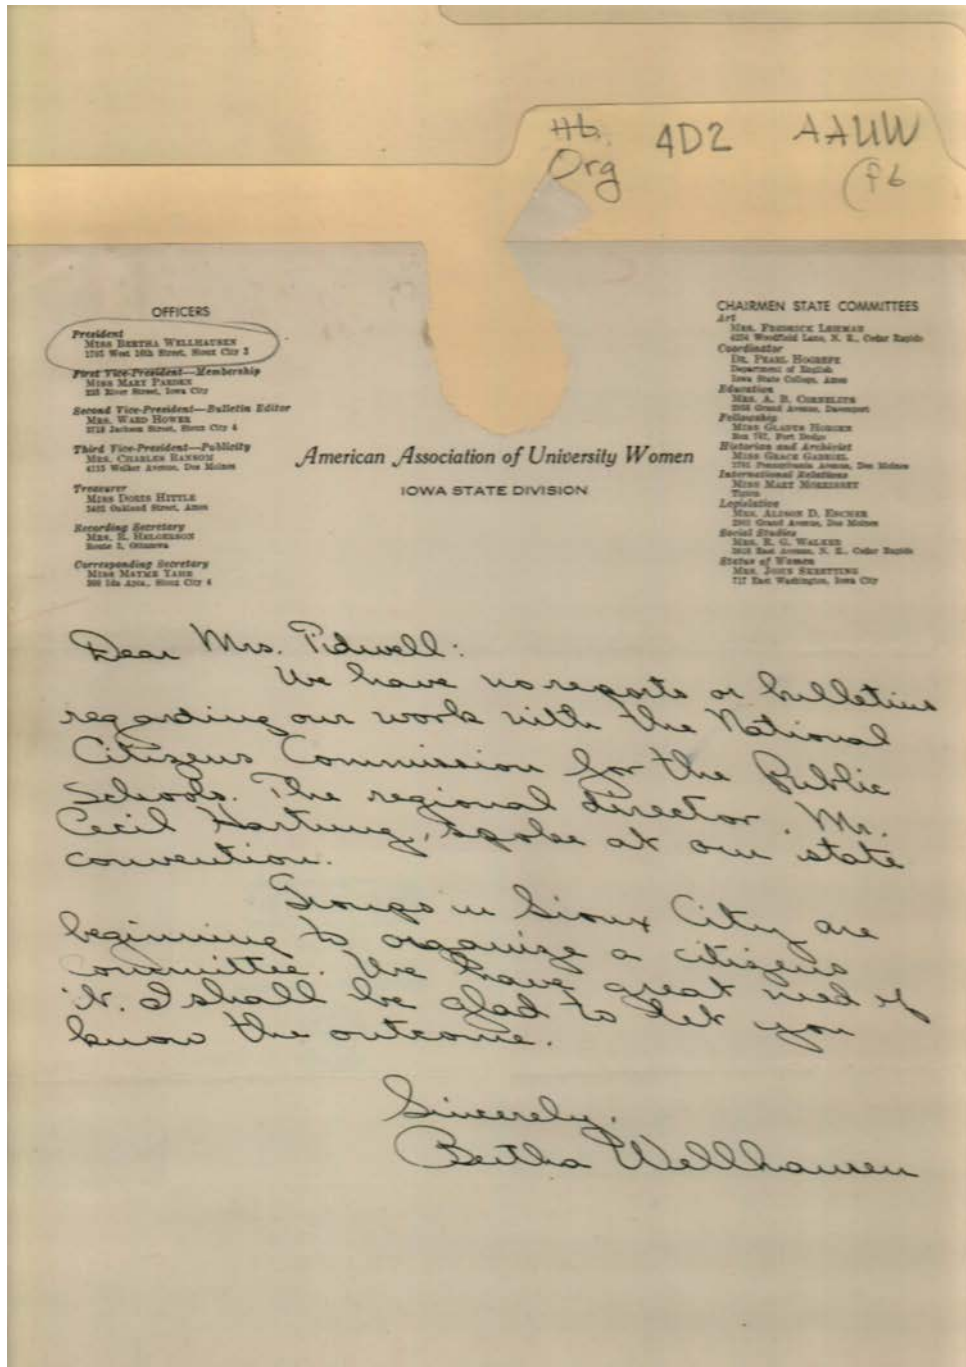 Org
4D2 AAUW
OFFICERS
President
MISS BERTHA WELLHAUSEN
1705 West 16th Street, Sioux City 3
First Vice-President—Membership
MISS MARY PARDEN
River Street, Iowa City
Second Vice-President—Bulletin Editor
MRS. WARD HOWER
Jackson Street, Sioux City 4
Third Vice-President—Publicity
MRS. CHARLES RANSOM
4115 Walker Avenue, Des Moines
Treasurer
MISS DORIS HITTLE
Oakland Street, Ames
Recording Secretary
MRS. R. HELGERSON
Route 2, Ottumwa
Corresponding Secretary
MISS MAYME YAHR
Ida Apts., Sioux City 4
American Association of University Women
IOWA STATE DIVISION
CHAIRMEN STATE COMMITTEES
Art
MRS. FREDRICK LEHMAN
Woodfield Lane, N. E., Cedar Rapids
Coordinator
DR. PEARL HOGREFE
Department of English
Iowa State College, Ames
Education
MRS. A. B.
Grand Avenue, Davenport
Fellowship
MISS GLADYS
Box 747, Fort Dodge
Historian and Archivist
MISS GRACE GABRIEL
Pennsylvania Avenue, Des Moines
International Relations
MISS MARY MORRISSEY
Legislative
MRS. ALISON D. ESCHER
Grand Avenue, Des Moines
Social Studies
MRS. R. G. WALKER
East Avenue, N. E., Cedar Rapids
Status of Women
MRS. JOHN
717 East Washington, Iowa City
Dear Mrs. Tidwell:
We have no reports or bulletins
regarding our work with the National
Citizens Commission for the Public
Schools. The regional director, Mr.
Cecil Hartung, spoke at our state
convention.
Groups in Sioux City are
beginning to organize a citizens
committee. We have great need of
it. I shall be glad to let you
know the outcome.
Sincerely,
Bertha Wellhausen